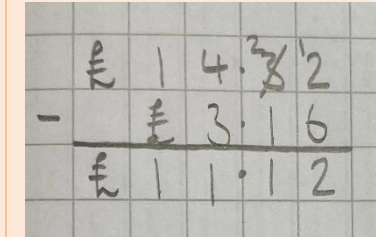 £ 1 4 . ²3 ¹2
- £ 3 . 1 6
£ 1 1 . 1 2